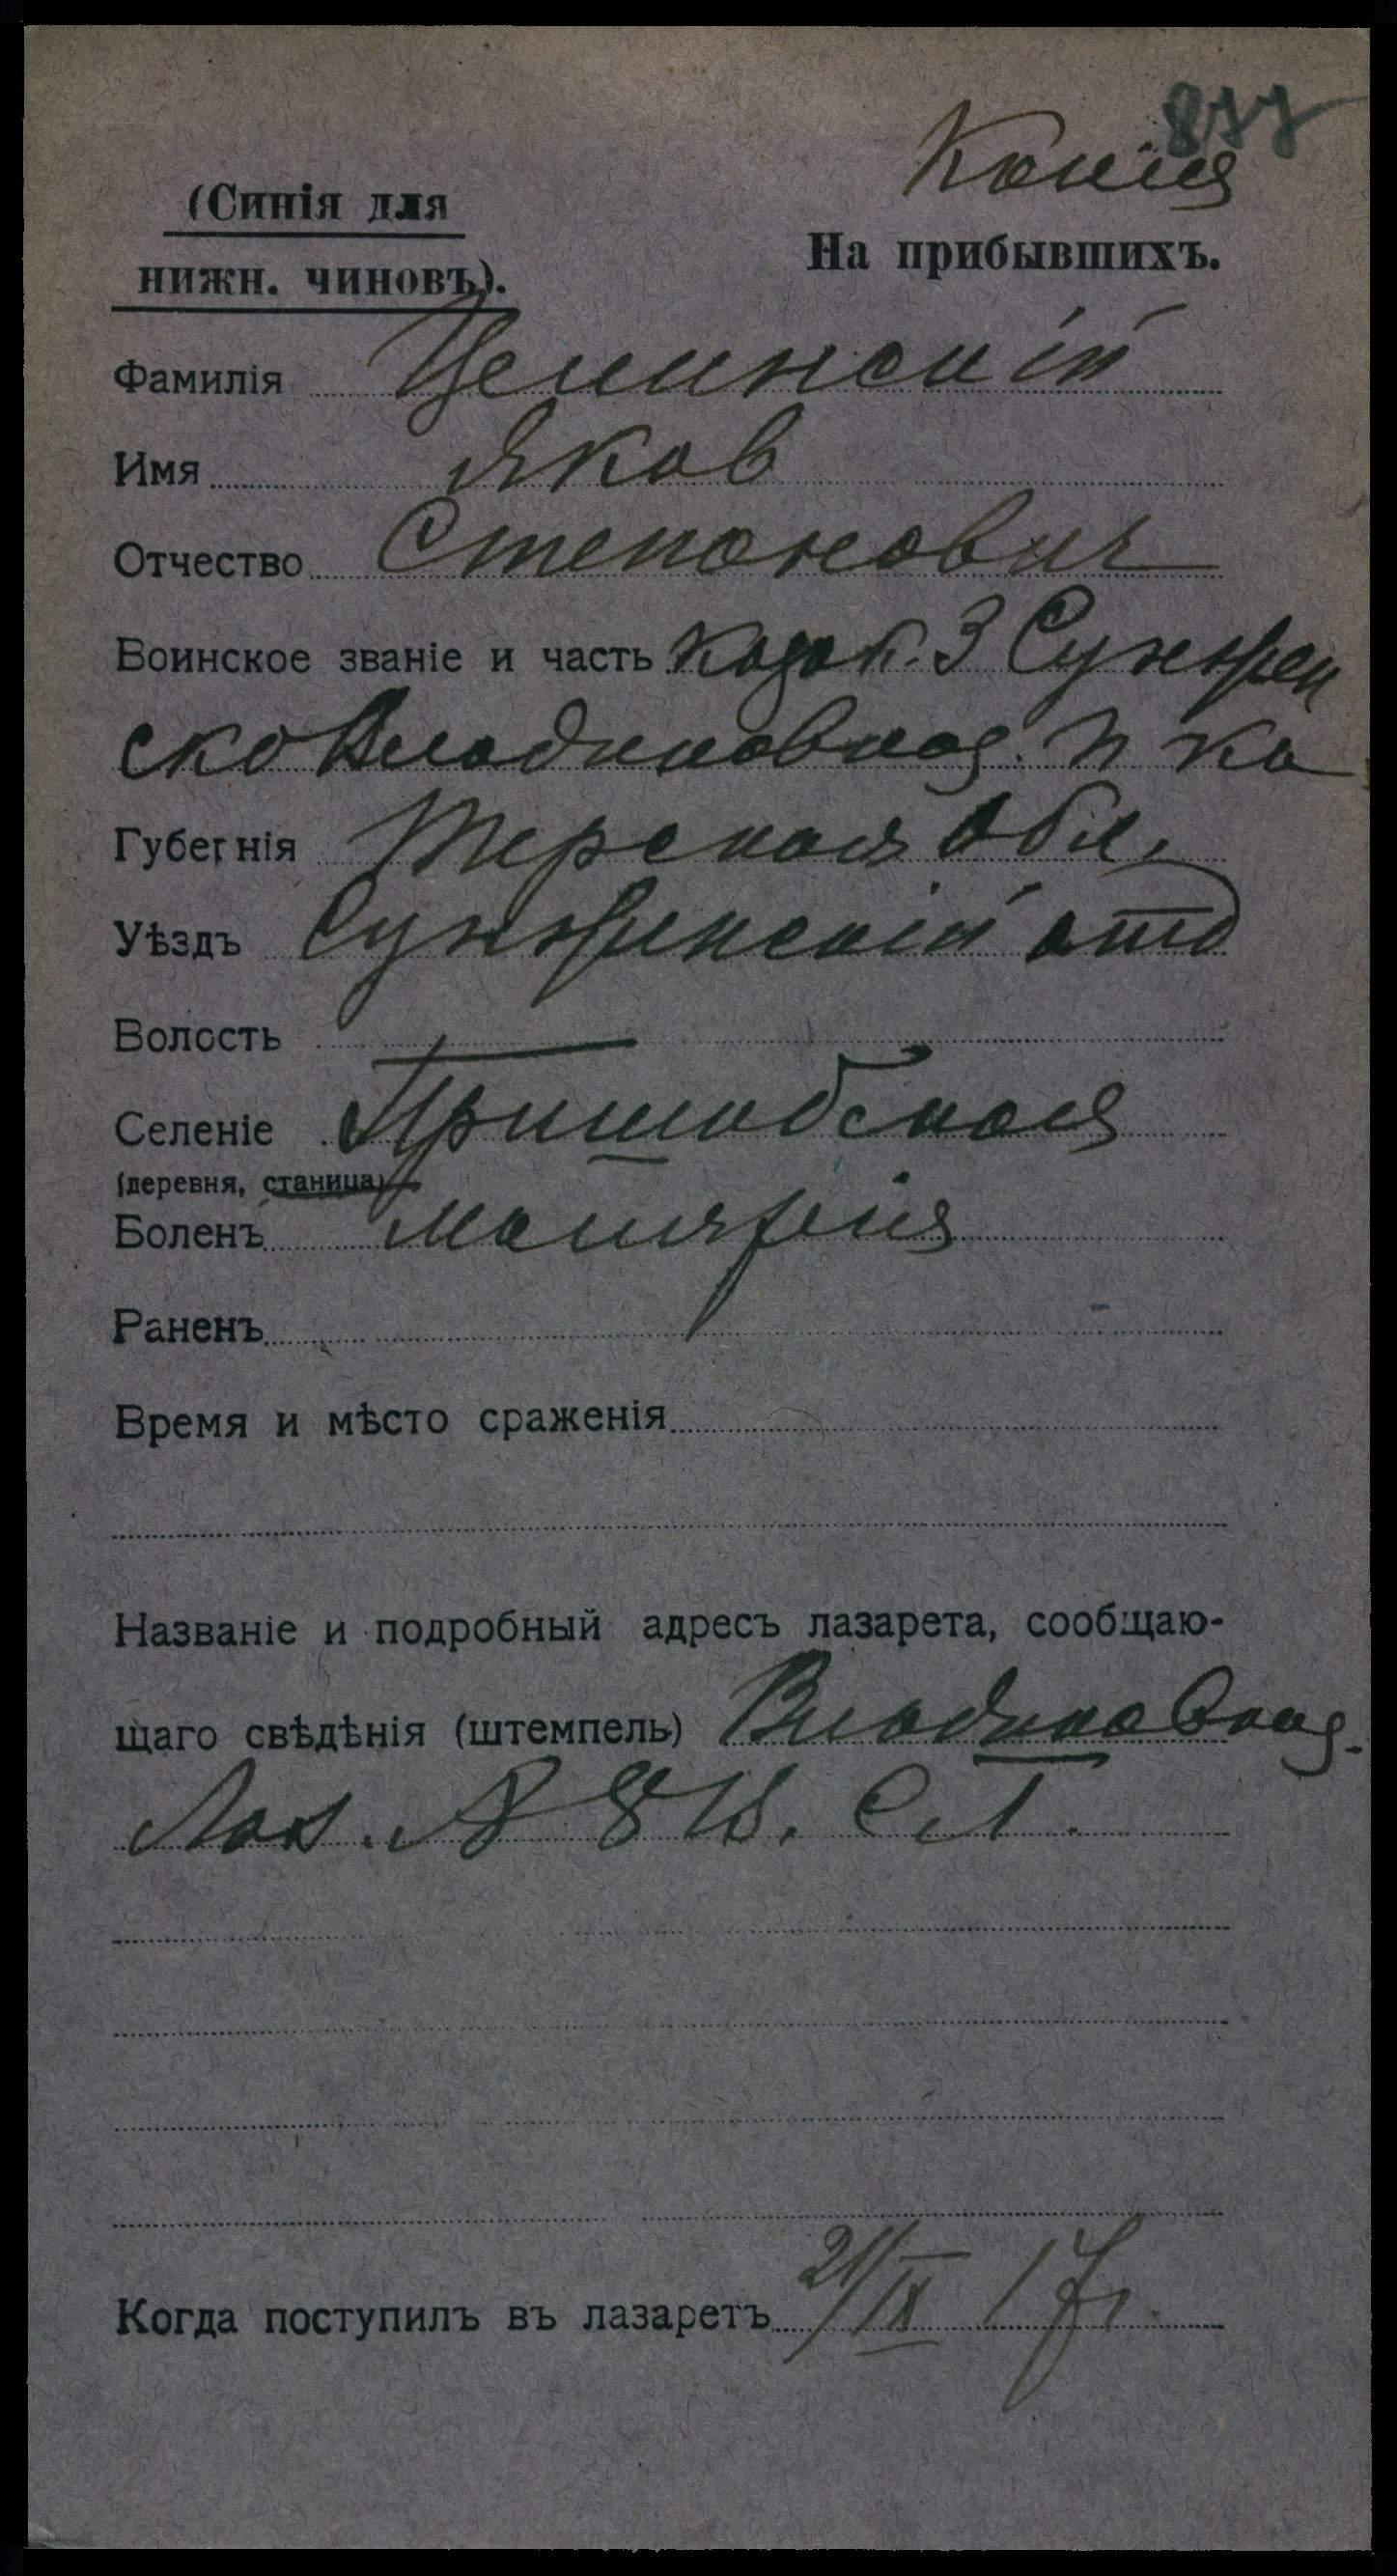 877
Копия
(Синія для
нижн. чиновъ).
На прибывшихъ.
Фамилія Целинский
Имя Яков
Отчество Степанович
Воинское званіе и часть Казак. 3 Сунжен
ско Владикавказ. п ка
Губернія Терская Обл.
Уѣздъ Сунженскій отд
Волость
Селеніе Пришибская
(деревня, станица)
Боленъ Малярія
Раненъ
Время и мѣсто сраженія
Названіе и подробный адресъ лазарета, сообщаю-
щаго свѣдѣнія (штемпель) Владикавказ.
Лаз. №
Когда поступилъ въ лазаретъ 21/IX 17г.